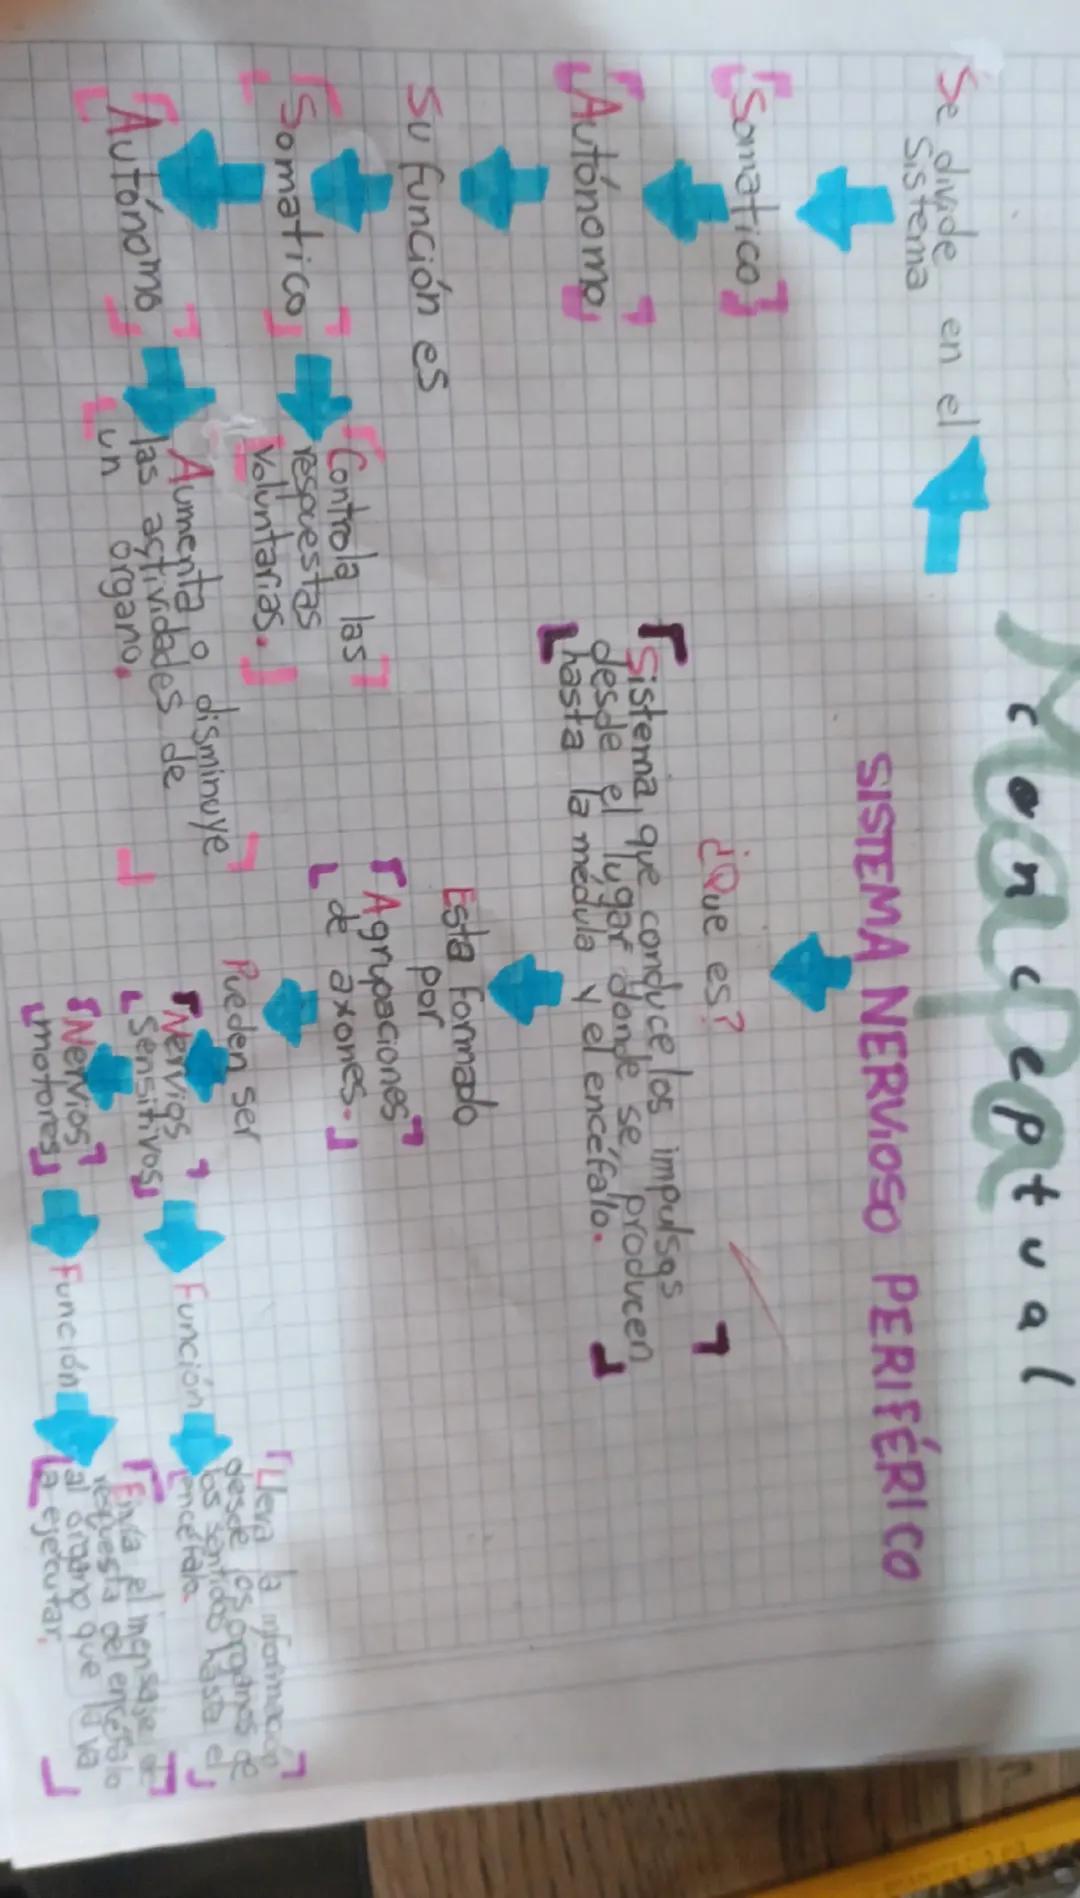 Mapa
Conceptual
SISTEMA NERVIOSO PERIFÉRICO
Se divide en el
Sistema
Somatico
Autónomo
Su función es
Somatico
Controla las
respuestas
Voluntarias.
Autónomo
Aumenta o disminuye
las actividades de
un organo.
¿Que es?
Sistema que conduce los impulsos
desde el lugar donde se producen
hasta la médula y el encéfalo.
Esta formado
por
Agrupaciones
de axones.
Pueden ser
Nervios
Sensitivos
Función
Lleva la información
desde los organos de
los sentidos hasta el
encéfalo.
Nervios
motores
Función
Envía el mensaje de
respuesta del encéfalo
al órgano que la va
a ejecutar.